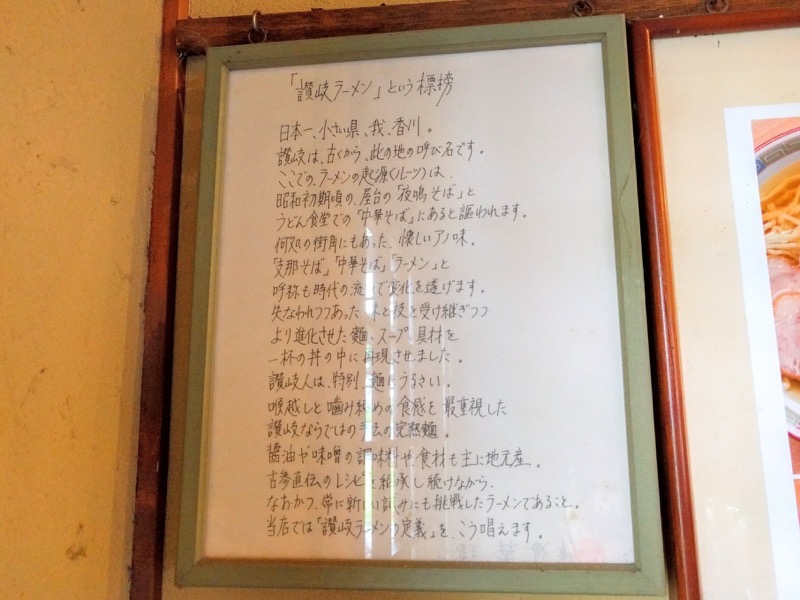 「讃岐ラーメン」という標榜
日本一、小さい県、我、香川。
讃岐は、古くから、此の地の呼び名です。
ここでの、ラーメンの起源(ルーツ)は、
昭和初期頃の、屋台の「夜鳴そば」と
うどん食堂での「中華そば」にあると謳われます。
何処の街角にもあった、懐しいアノ味。
「支那そば」「中華そば」「ラーメン」と
呼称も時代の流れで変化を遂げます。
失なわれつつあった味と技を受け継ぎつつ
より進化させた麺、スープ、具材を
一杯の丼の中に再現させました。
讃岐人は、特別、麺にうるさい。
喉越しと噛み締めの食感を最重視した
讃岐ならではの手法の完熟麺。
醤油や味噌の調味料や、食材も主に地元産。
古参直伝のレシピを継承し続けながら、
なおかつ、常に新しい試みにも挑戦したラーメンであること。
当店では「讃岐ラーメンの定義」を、こう唱えます。